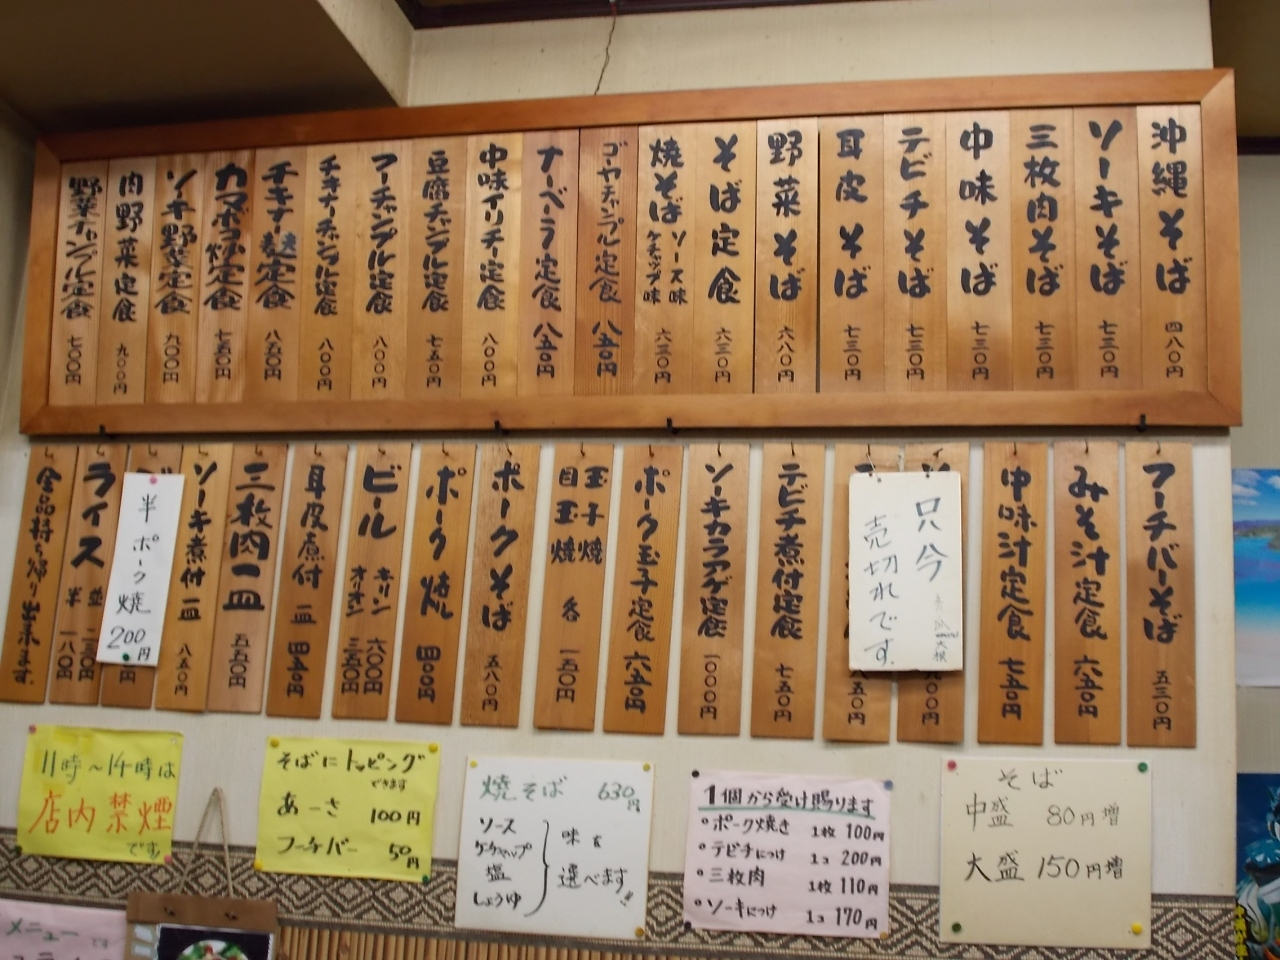 沖縄そば 四八〇円
ソーキそば 七三〇円
三枚肉そば 七三〇円
中味そば 七三〇円
テビチそば 七三〇円
耳皮そば 七三〇円
野菜そば 六八〇円
そば定食 六三〇円
焼そば ソース味 ケチャップ味 六三〇円
ゴーヤチャンプル定食 八五〇円
ナーベーラ定食 八五〇円
中味イリチー定食 八〇〇円
豆腐チャンプル定食 七五〇円
フーチャンプル定食 八〇〇円
チキナーチャンプル定食 八〇〇円
チキナー 定食 八五〇円
カマボコ 定食 七五〇円
ソーキ野菜定食 九〇〇円
肉野菜定食 九〇〇円
野菜チャンプル定食 七〇〇円
フーチバーそば 五三〇円
みそ汁定食 六五〇円
中味汁定食 七五〇円
只今
売切れです。
テビチ煮付定食 七五〇円
ソーキカラアゲ定食 一〇〇〇円
ポーク玉子定食 六五〇円
玉子焼
目玉焼 各 一五〇円
ポークそば 五八〇円
ポーク焼 四〇〇円
ビール キリン 六〇〇円
オリオン 三五〇円
耳皮煮付 一皿 四五〇円
三枚肉一皿 五五〇円
ソーキ煮付 一皿 八五〇円
半ポーク焼
200円
ライス 並 二三〇円
半 一八〇円
全品持ち帰り出来ます
11時〜14時は
店内禁煙
です
そばにトッピング
できます
あーさ 100円
フーチバー 50円
焼そば 630円
ソース
ケチャップ
塩
しょうゆ
味を
選べます!!
1個から受け賜ります
・ポーク焼き 1枚 100円
・テビチにつけ 1コ 200円
・三枚肉 1枚 110円
・ソーキにつけ 1コ 170円
そば
中盛 80円増
大盛 150円増
メニュー です